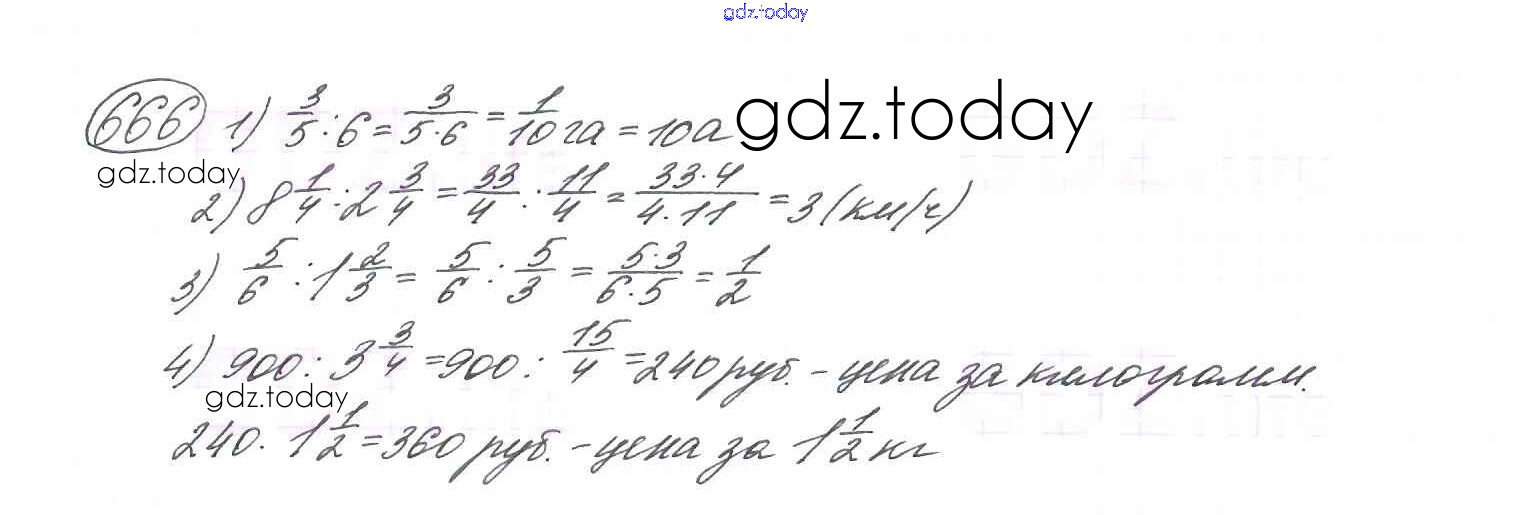 gdz.today
666 1) 3/5 : 6 = 3/(5·6) = 1/10 га = 10а gdz.today
gdz.today
2) 8 1/4 : 2 3/4 = 33/4 : 11/4 = (33·4)/(4·11) = 3 (км/ч)
3) 5/6 : 1 2/3 = 5/6 : 5/3 = (5·3)/(6·5) = 1/2
4) 900 : 3 3/4 = 900 : 15/4 = 240 руб. – цена за килограмм.
gdz.today
240 · 1 1/2 = 360 руб. – цена за 1 1/2 кг